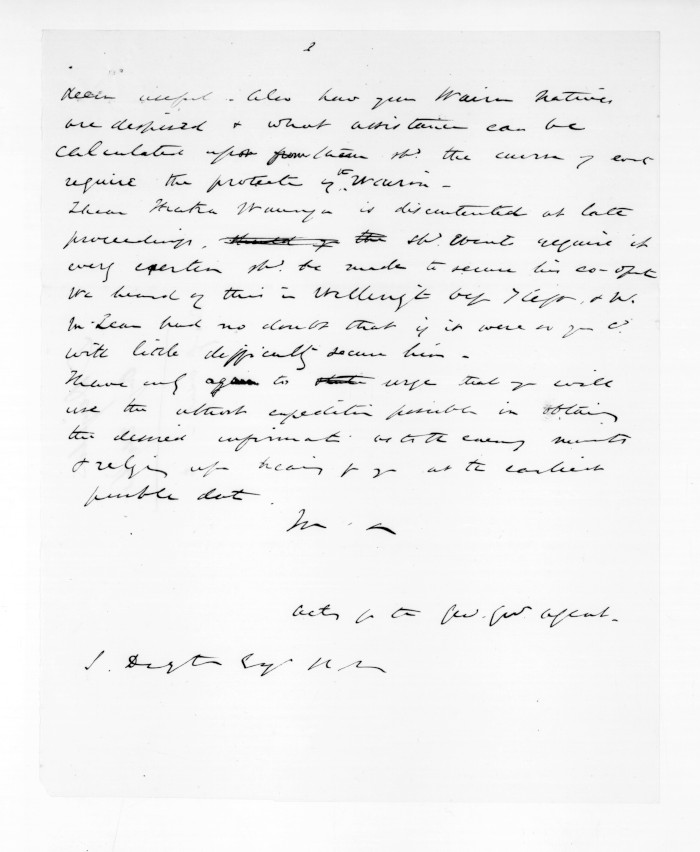 2
deem useful. Also how your Wairoa Natives
are disposed & what assistance can be
calculated upon from them shd. the course of events
require the protectn of the Wairoa -
Ihaka is discontented at late
proceedings, should the shd. Events require it
every exertion shd. be made to secure his co-opn
We heard of this in Wellingtn & Mr.
McLean had no doubt that if it were so you cd.
with little difficulty secure him -
I have only again to state urge that you will
use the utmost expedition possible in obtaing
the desired informatn as to the enemy movemts
& relying upn hearing fr you at the earliest
possible date
Actg for the Genl. Govt. Agent -
S. Deighton Esqr R.M.